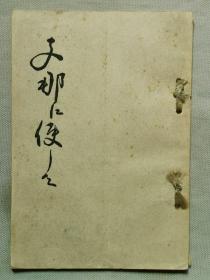 支那に使して